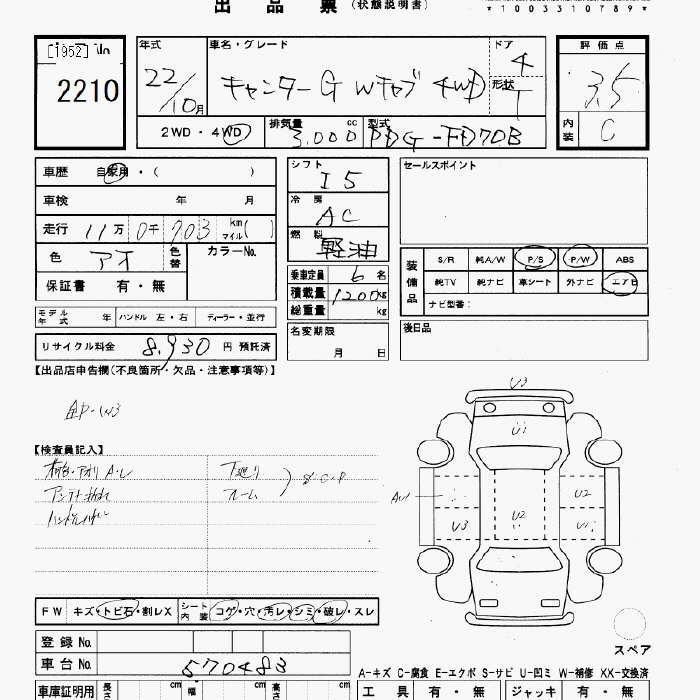 出 品 票 (状態説明書)
*1003310789*
[1952]
2210
年式 22/10月
車名・グレード キャンターG Wキャブ 4WD
ドア 4
形状 T
評価点 3.5
内装 C
2WD・4WD
排気量 3.000 cc
型式 PDG-FD70B
車歴 自家用・( )
車検 年 月
走行 11万 0千 703 km マイル( )
色 アオ 色替
カラーNo.
保証書 有・無
モデル年式 年 ハンドル 左・右 ディーラー・並行
リサイクル料金 8,930 円 預託済
シフト I5
冷房 AC
燃料 軽油
乗車定員 6 名
積載量 1200 kg
総重量 kg
名変期限
月 日
セールスポイント
装備品
S/R 純A/W P/S P/W ABS
純TV 純ナビ 車シート 外ナビ エアB
ナビ型番:
後日品
【出品店申告欄(不良箇所・欠品・注意事項等)】
【検査員記入】
荷台・アオリ A・U
下廻り
ルーム
S・C・P
U3
U1
A1
U2
U3
U2
U1
FW キズ・トビ石・割レX
シート内装 コゲ・穴・汚レ・シミ・破レ・スレ
スペア
登録 No.
車台 No. 570483
A-キズ C-腐食 E-エクボ S-サビ U-凹ミ W-補修 XX-交換済
車庫証明用 長さ cm 幅 cm 高さ cm
工具 有・無 ジャッキ 有・無